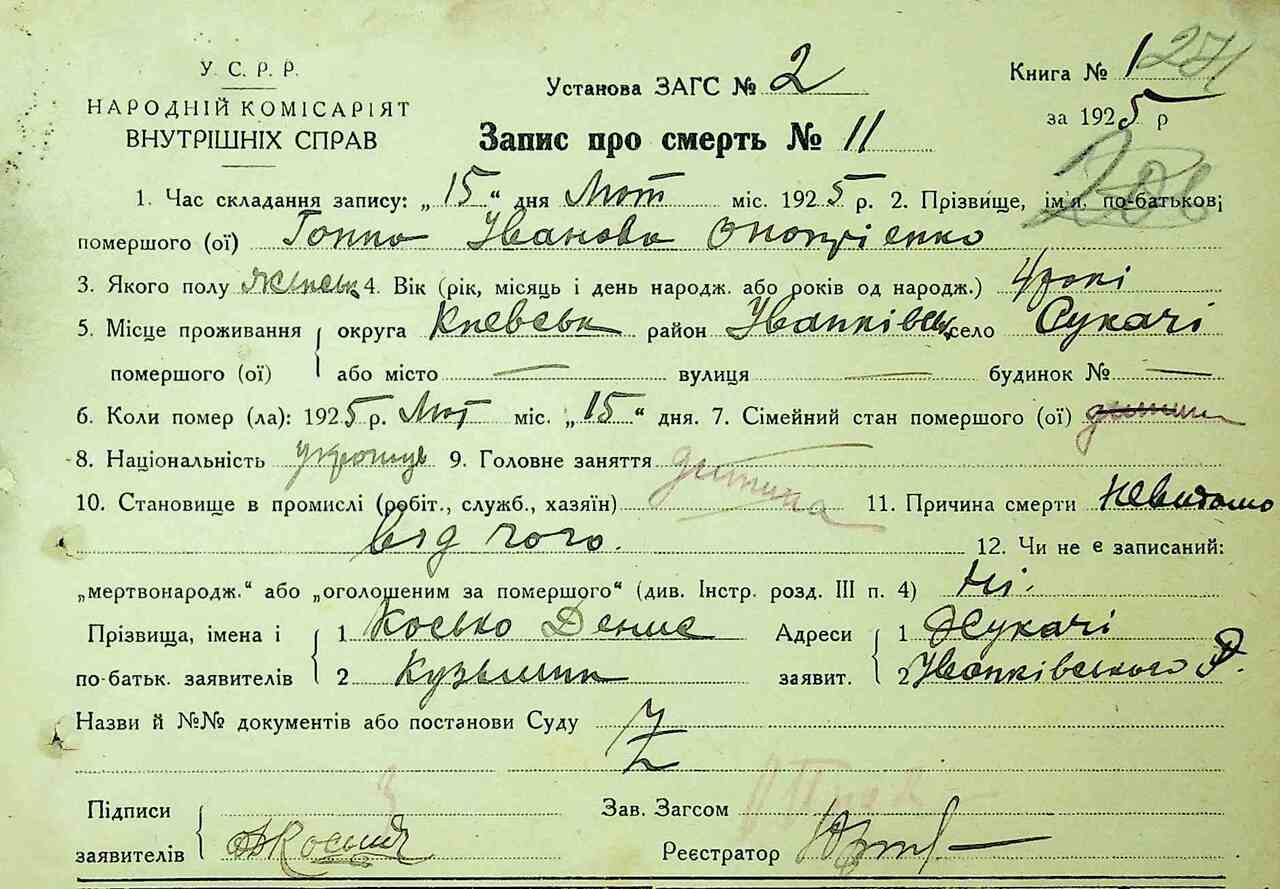 У. С. Р. Р.
НАРОДНІЙ КОМІСАРІЯТ
ВНУТРІШНІХ СПРАВ
Установа ЗАГС № 2
Книга № 1
за 1925 р
Запис про смерть № 11
1. Час складання запису: „15“ дня Лют міс. 1925 р. 2. Прізвище, ім'я, по-батькові
помершого (ої) Ганна Іванова Оноприенко
3. Якого полу жіноськ 4. Вік (рік, місяць і день народж. або років од народж.) 4 рокі
5. Місце проживання округа Киевськ район Іванківськ село Сукачі
помершого (ої) або місто — вулиця — будинок № —
6. Коли помер (ла): 1925 р. Лют міс. „15“ дня. 7. Сімейний стан помершого (ої) дитина
8. Національність 9. Головне заняття дитина
10. Становище в промислі (робіт., служб., хазяїн) 11. Причина смерти невидомо
від чого.
12. Чи не є записаний:
„мертвонародж.“ або „оголошеним за помершого“ (див. Інстр. розд. III п. 4) Ні.
Прізвища, імена і по-батьк. заявителів
1 Косько Денис
2 Кузьмин
Адреси заявит.
1 Сукачі
2 Іванківського Р.
Назви й №№ документів або постанови Суду
Підписи заявителів
Зав. Загсом
Реєстратор